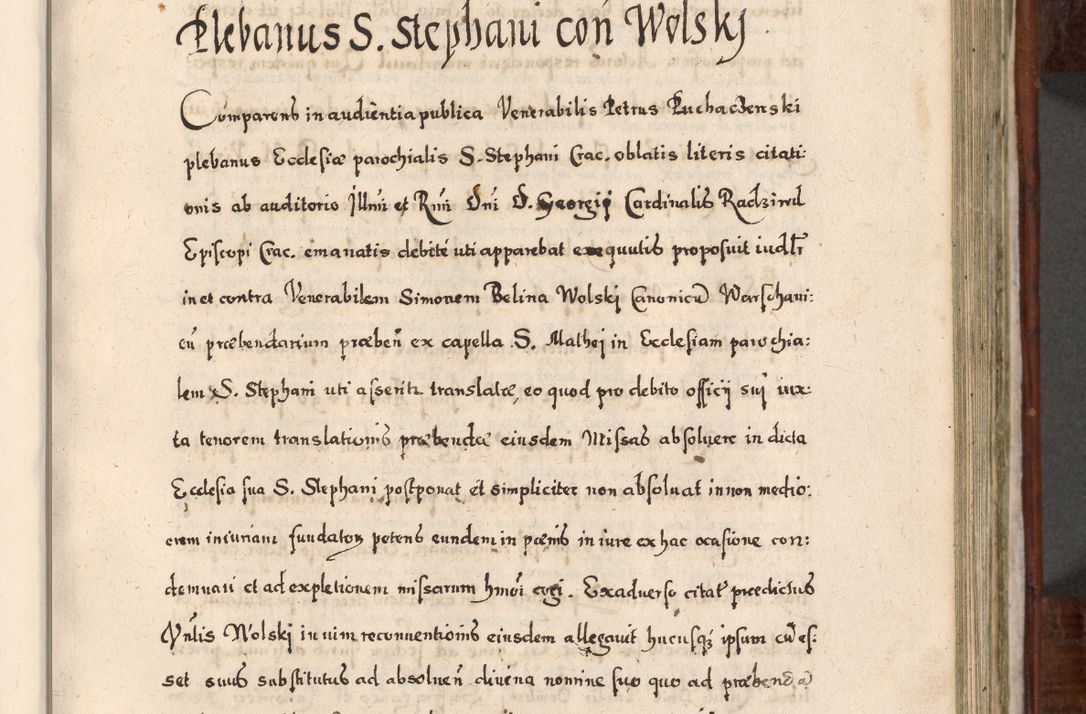 Plebanus S. Stephani coñ Wolskj
Comparens in audientia publica Venerabilis Petrus Puchaczenski
plebanus Ecclesiæ parochialis S. Stephani Crac. oblatis literis citati:
onis ab auditorio Illmi et Rmi Dni D. Georgij Cardinalis Radziwil
Episcopi Crac. emanatis debite uti apparebat exequutis proposuit iudlr
in et contra Venerabilem Simonem Belina Wolskj Canonicū Warschaui:
eū præbendarium præbeñ ex capella S. Mathej in Ecclesiam parochia:
lem S. Stephani uti asseritr translatæ, eo quod pro debito officij sui iux:
ta tenorem translationis præbendæ eiusdem Missas absoluere in dicta
Ecclesia sua S. Stephani postponat et simpliciter non absoluat in non medio:
crem iniuriam fundator petens eundem in pœnis in iure ex hac ocasione con:
demnari et ad expletionem missarum hmoi cogi. Ex aduerso citat prædictus
Vnlis Wolskj in uim reconuentionis eiusdem allegauit hucusq ipsum cū es:
set suus substitutus ad absolueñ diuina nomine suo quo ad præbenda